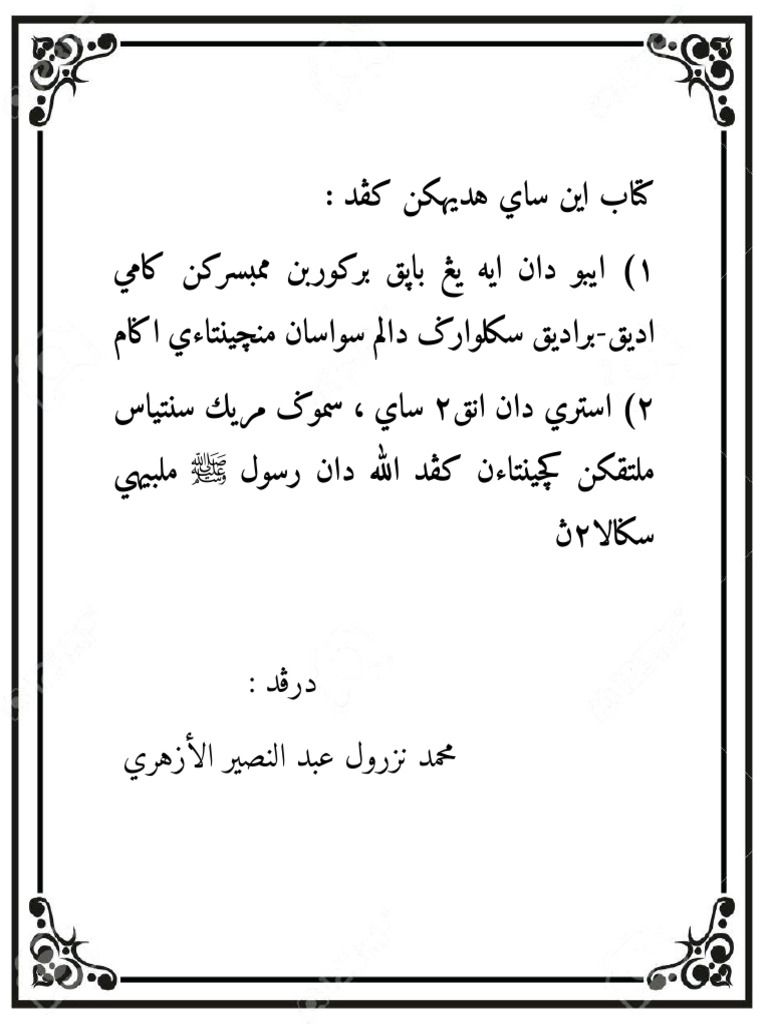 كتاب اين ساي هديهكن كڤد :
١) ايبو دان ايه يڠ باڽق بركوربن ممبسركن كامي
اديق-براديق سكلوارݢ دالم سواسان منچينتاءي اݢام
٢) استري دان انق٢ ساي ، سموݢ مريك سنتياس
ملتقكن كچينتاءن كڤد الله دان رسول ﷺ ملبيهي
سݢالا٢ڽ
درڤد :
محمد نزرول عبد النصير الأزهري